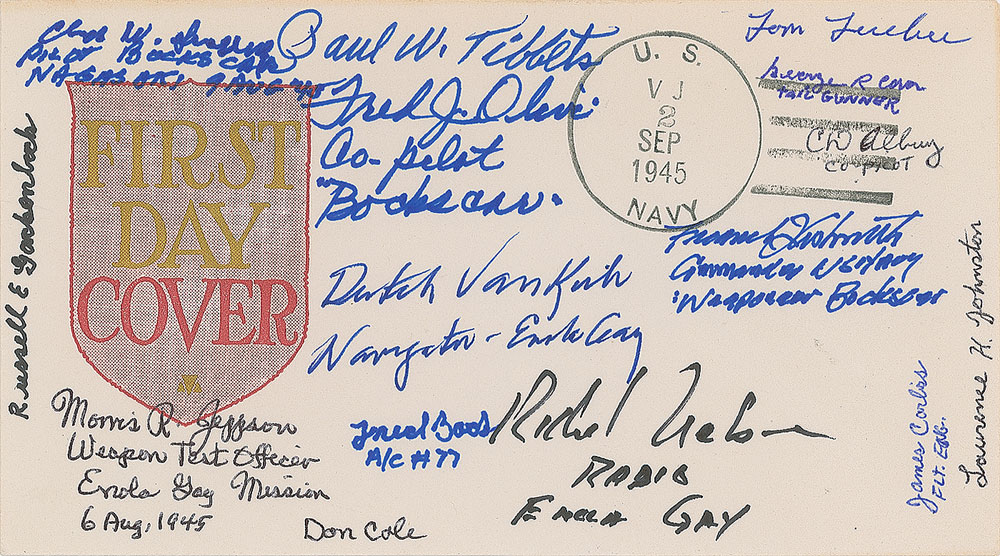 Chas W. Sweeney
Pilot BOCKSCAR
NAGASAKI 9 AUG '45
Paul W. Tibbets
Fred J. Olivi
Co-pilot
"Bockscar"
U. S.
VJ
2
SEP
1945
NAVY
Tom Ferebee
George R Caron
TAIL GUNNER
CD Albury
CO-PILOT
FIRST
DAY
COVER
Russell E Gackenbach
Dutch VanKirk
Navigator - Enola Gay
Commander US Navy
"Weaponeer Bockscar
Lawrence H. Johnston
James Corliss
FLT. ENG.
Morris R. Jeppson
Weapon Test Officer
Enola Gay Mission
6 Aug, 1945
A/C #77
Richard Nelson
RADIO
ENOLA GAY
Don Cole